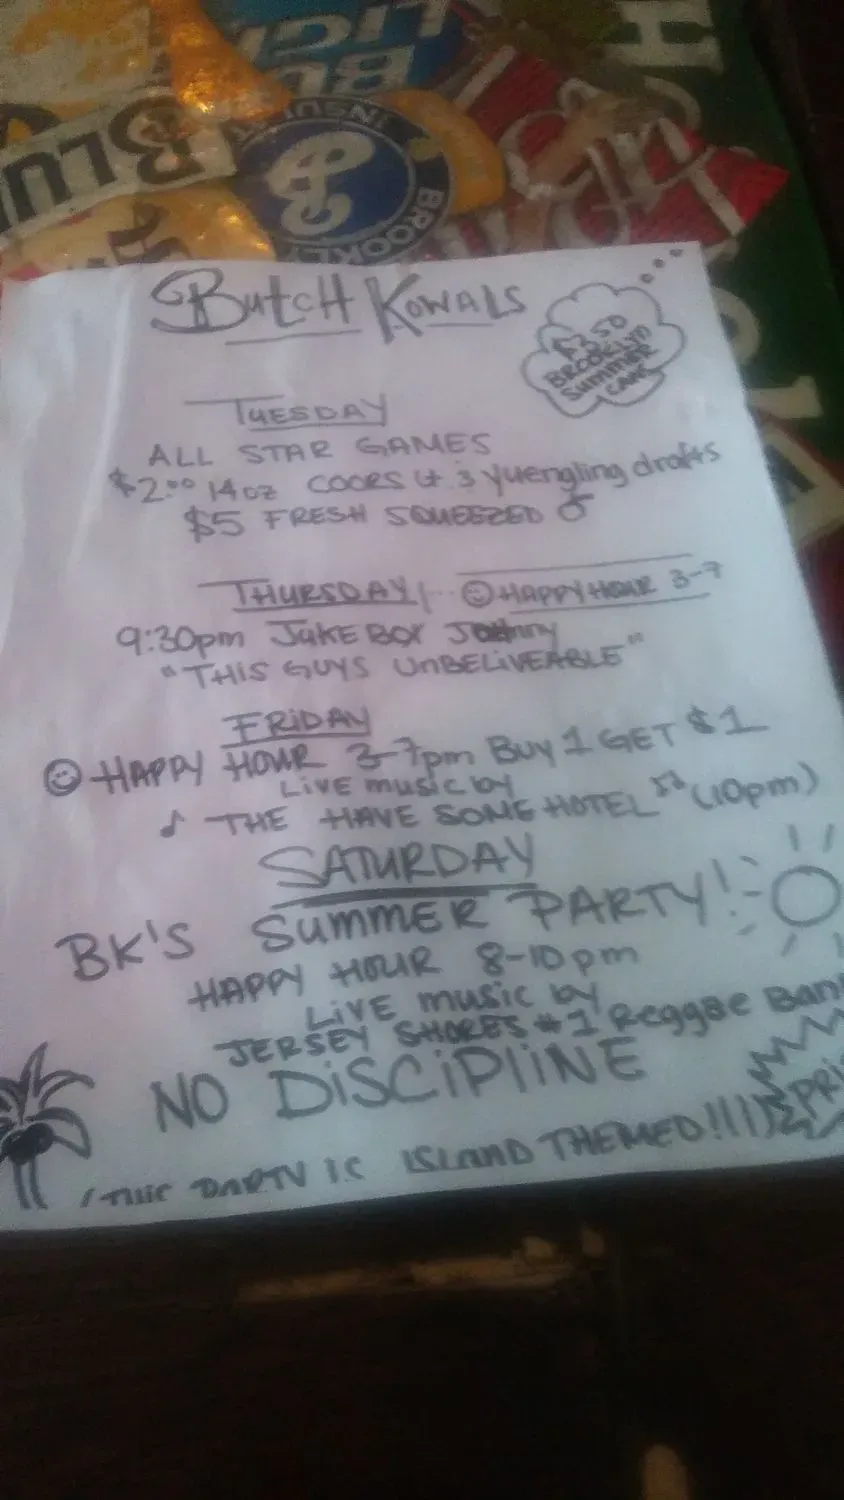 BUD
LIGHT
BLUE
INSULATE
BROOKLYN
B
H
Butch Kowals
$3.50
BROOKLYN
SUMMER
CANS
TUESDAY
ALL STAR GAMES
$2.00 14oz COORS Lt & Yuengling drafts
$5 FRESH SQUEEZED
THURSDAY HAPPY HOUR 3-7
9:30pm JUKE BOX Johnny
"THIS GUYS UNBELIVEABLE"
FRIDAY
HAPPY HOUR 3-7pm BUY 1 GET $1
LIVE music by
THE HAVE SOME HOTEL (10pm)
SATURDAY
BK'S SUMMER PARTY!
HAPPY HOUR 8-10pm
LIVE music by
JERSEY SHORES #1 Reggae Ban
NO DISCIPLINE
THIS PARTY IS ISLAND THEMED!!!!
PRI